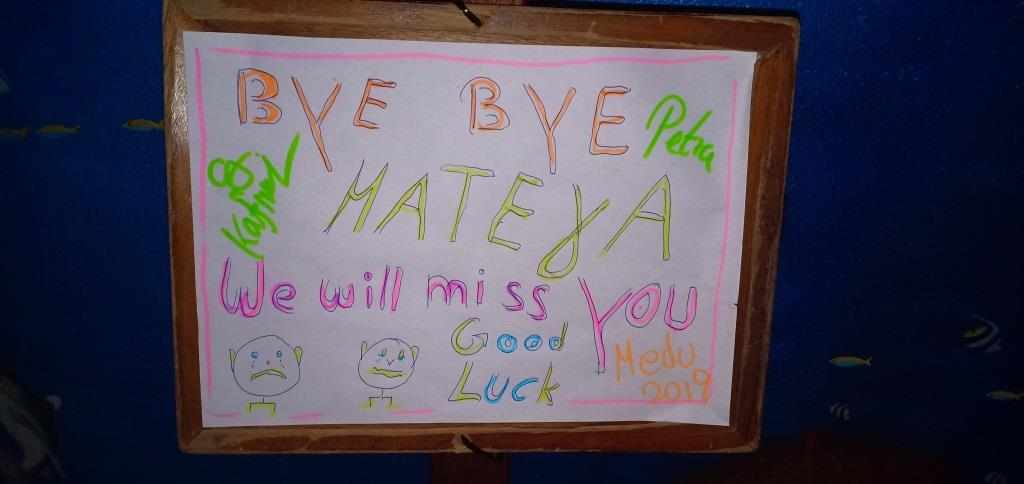 BYE BYE
Petra
MATEYA
We will miss YOU
Good
Luck
Medu
2019